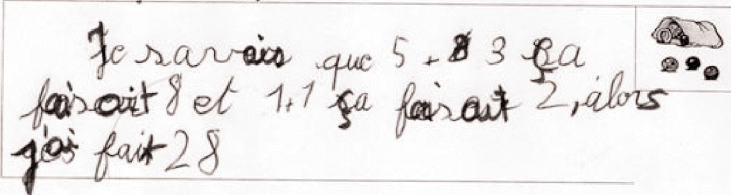 Je savais que 5 + 3 ça
faisait 8 et 1+1 ça faisait 2, alors
j'ai fait 28